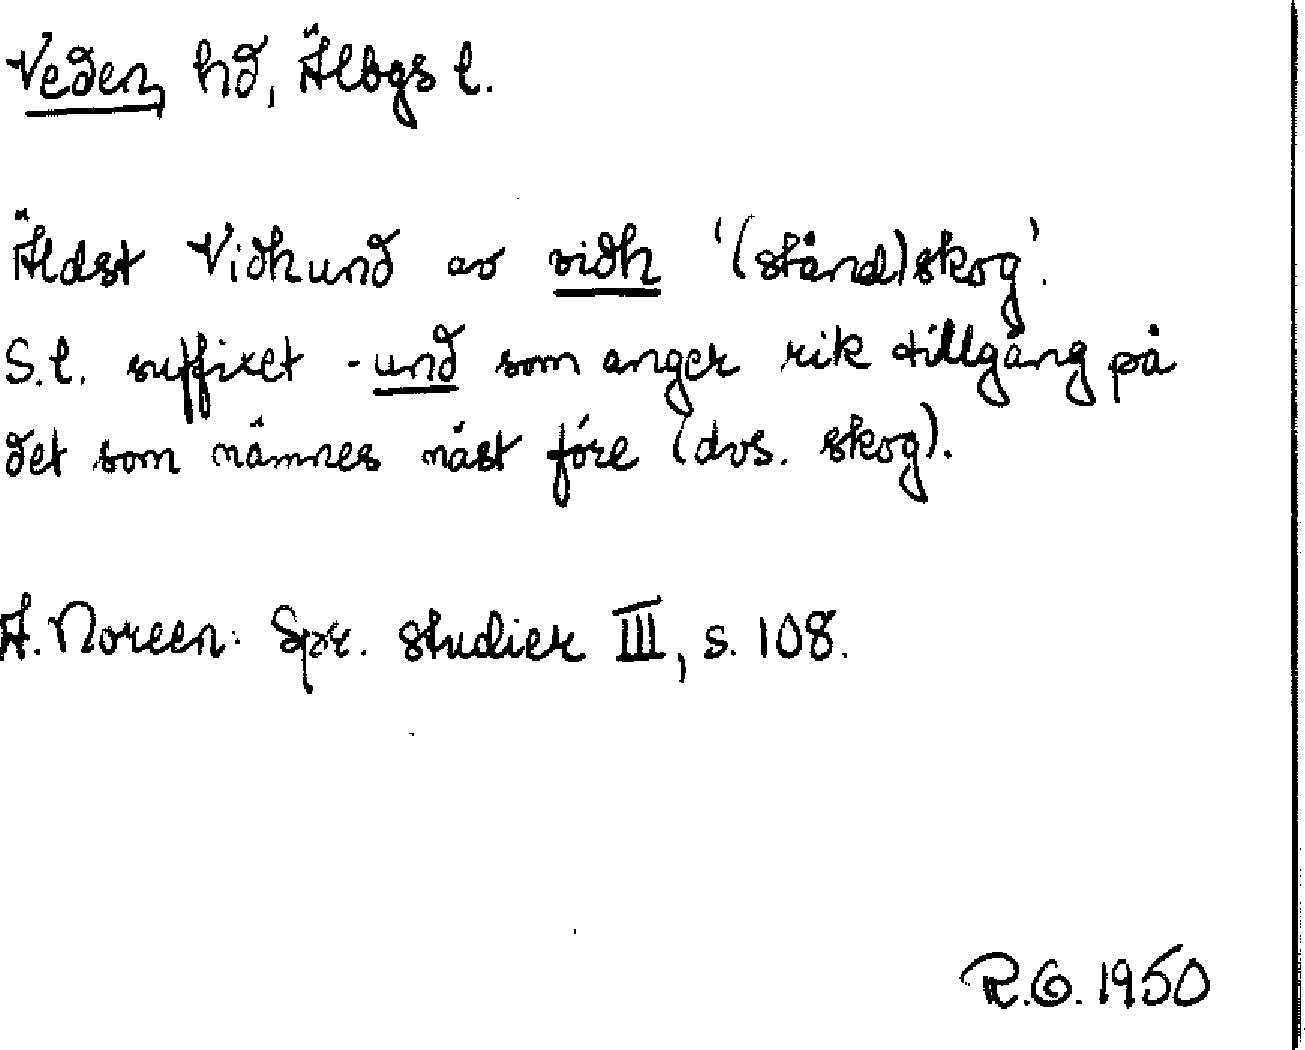 Veden, hd, Älbgs l.
Äldst Vidhund av vidh '(stånd)skog'.
S.l. suffixet -und som anger rik tillgång på
det som nämnes näst före (dvs. skog).
A. Noreen: Spr. studier III, s. 108.
R.G. 1950